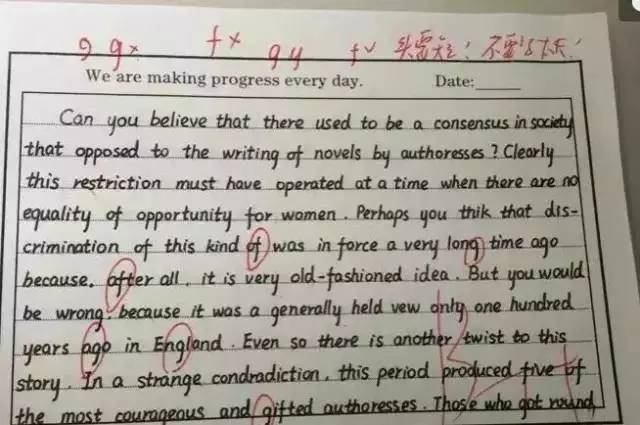 9 g× f× 9 y f✓
We are making progress every day. Date:
Can you believe that there used to be a consensus in society
that opposed to the writing of novels by authoresses ? Clearly
this restriction must have operated at a time when there are no
equality of opportunity for women . Perhaps you thik that dis-
crimination of this kind of was in force a very long time ago
because, after all , it is very old-fashioned idea . But you would
be wrong, because it was a generally held vew only one hundred
years ago in England . Even so there is another twist to this
story . In a strange condradiction , this period produced five of
the most courageous and gifted authoresses . Those who got round